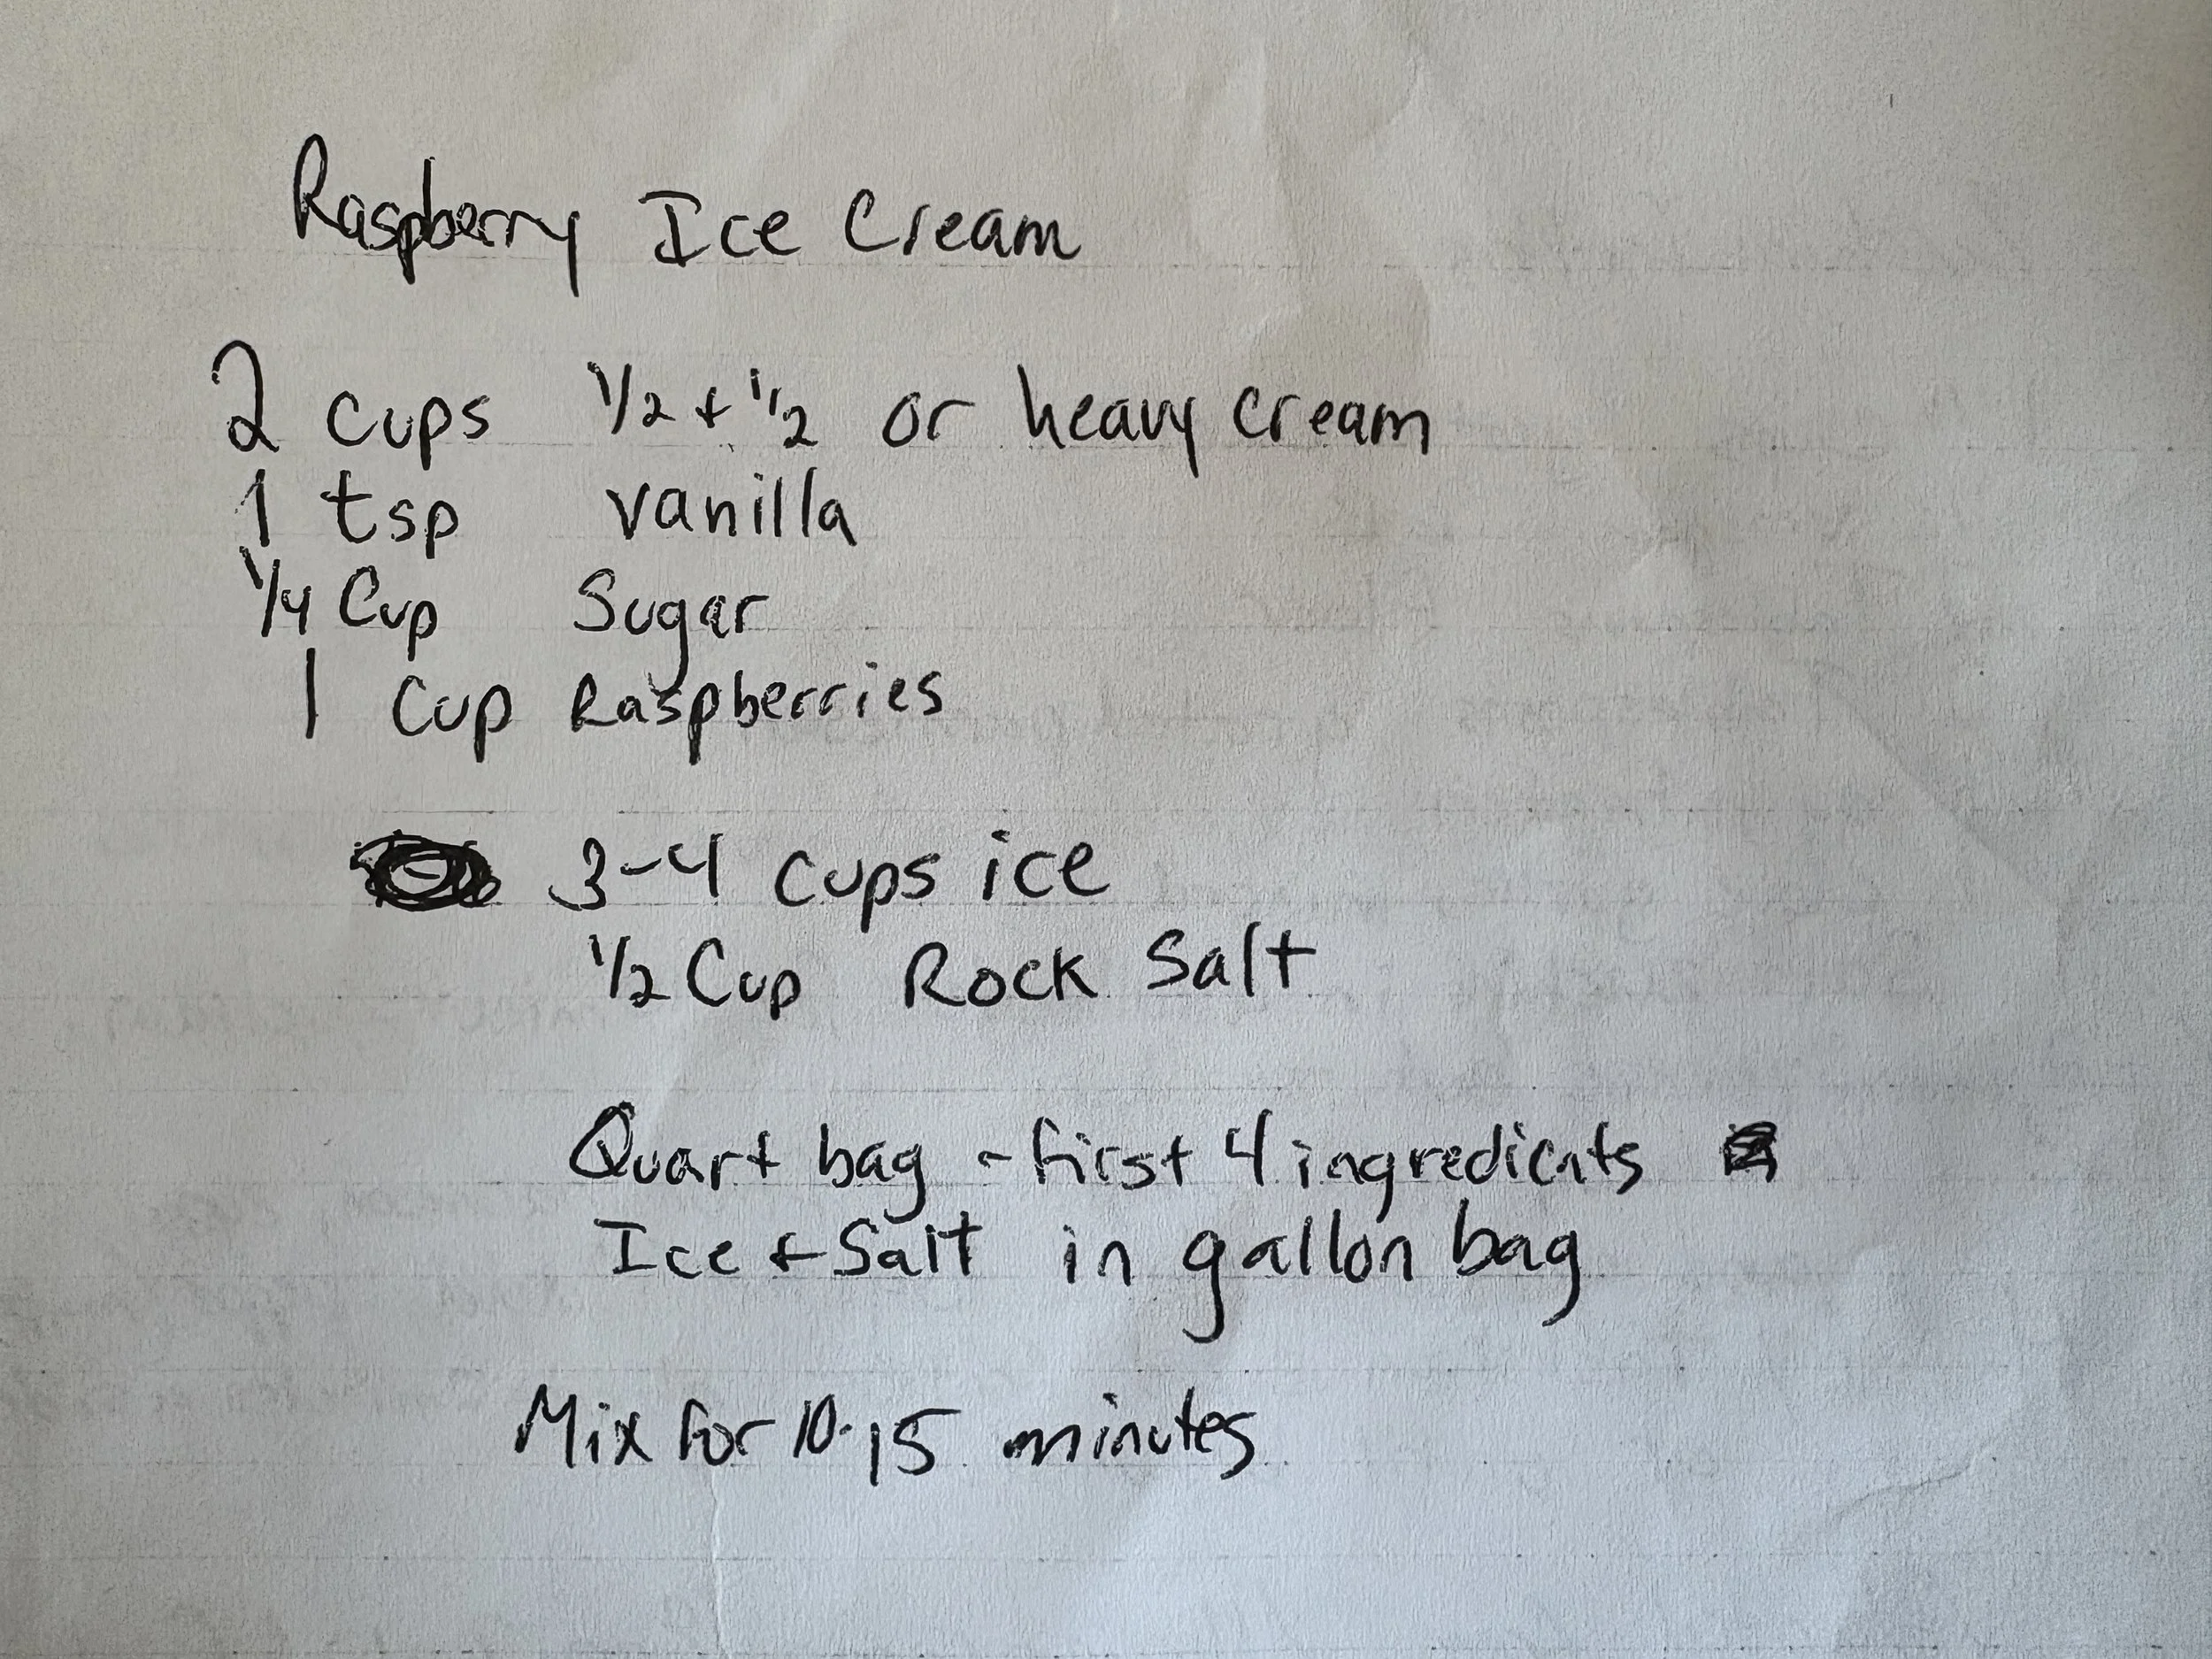 Raspberry Ice Cream
2 cups 1/2 + 1/2 or heavy cream
1 tsp vanilla
1/4 Cup Sugar
1 Cup Raspberries
3-4 cups ice
1/2 Cup Rock Salt
Quart bag - first 4 ingredients
Ice + Salt in gallon bag
Mix for 10-15 minutes